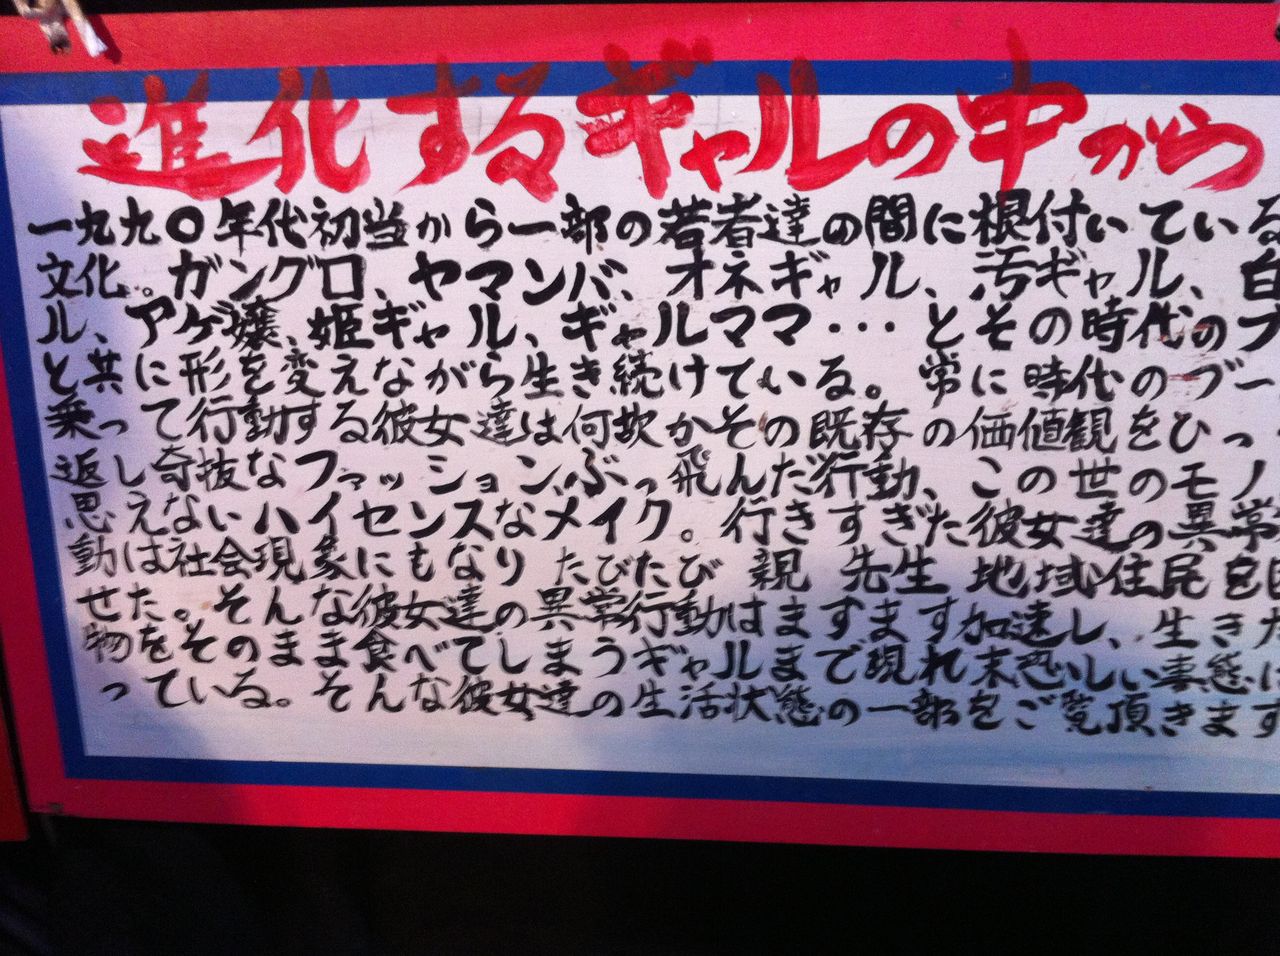 進化するギャルの中から
一九九〇年代初当から一部の若者達の間に根付いている
文化。ガングロ、ヤマンバ、オネギャル、汚ギャル、白
ル、アゲ嬢、姫ギャル、ギャルママ…とその時代のブ
と共に形を変えながら生き続けている。常に時代のブー
乗って行動する彼女達は何故かその既存の価値観をひっ
返し奇抜なファッション、ぶっ飛んだ行動、この世のモノ
思えないハイセンスなメイク。行きすぎた彼女達の異常
動は社会現象にもなりたびたび親 先生 地域住民を
せた。そんな彼女達の異常行動はますます加速し、生きた
物をそのまま食べてしまうギャルまで現れ末恐いしい事態に
っている。そんな彼女達の生活状態の一部をご覧頂きます